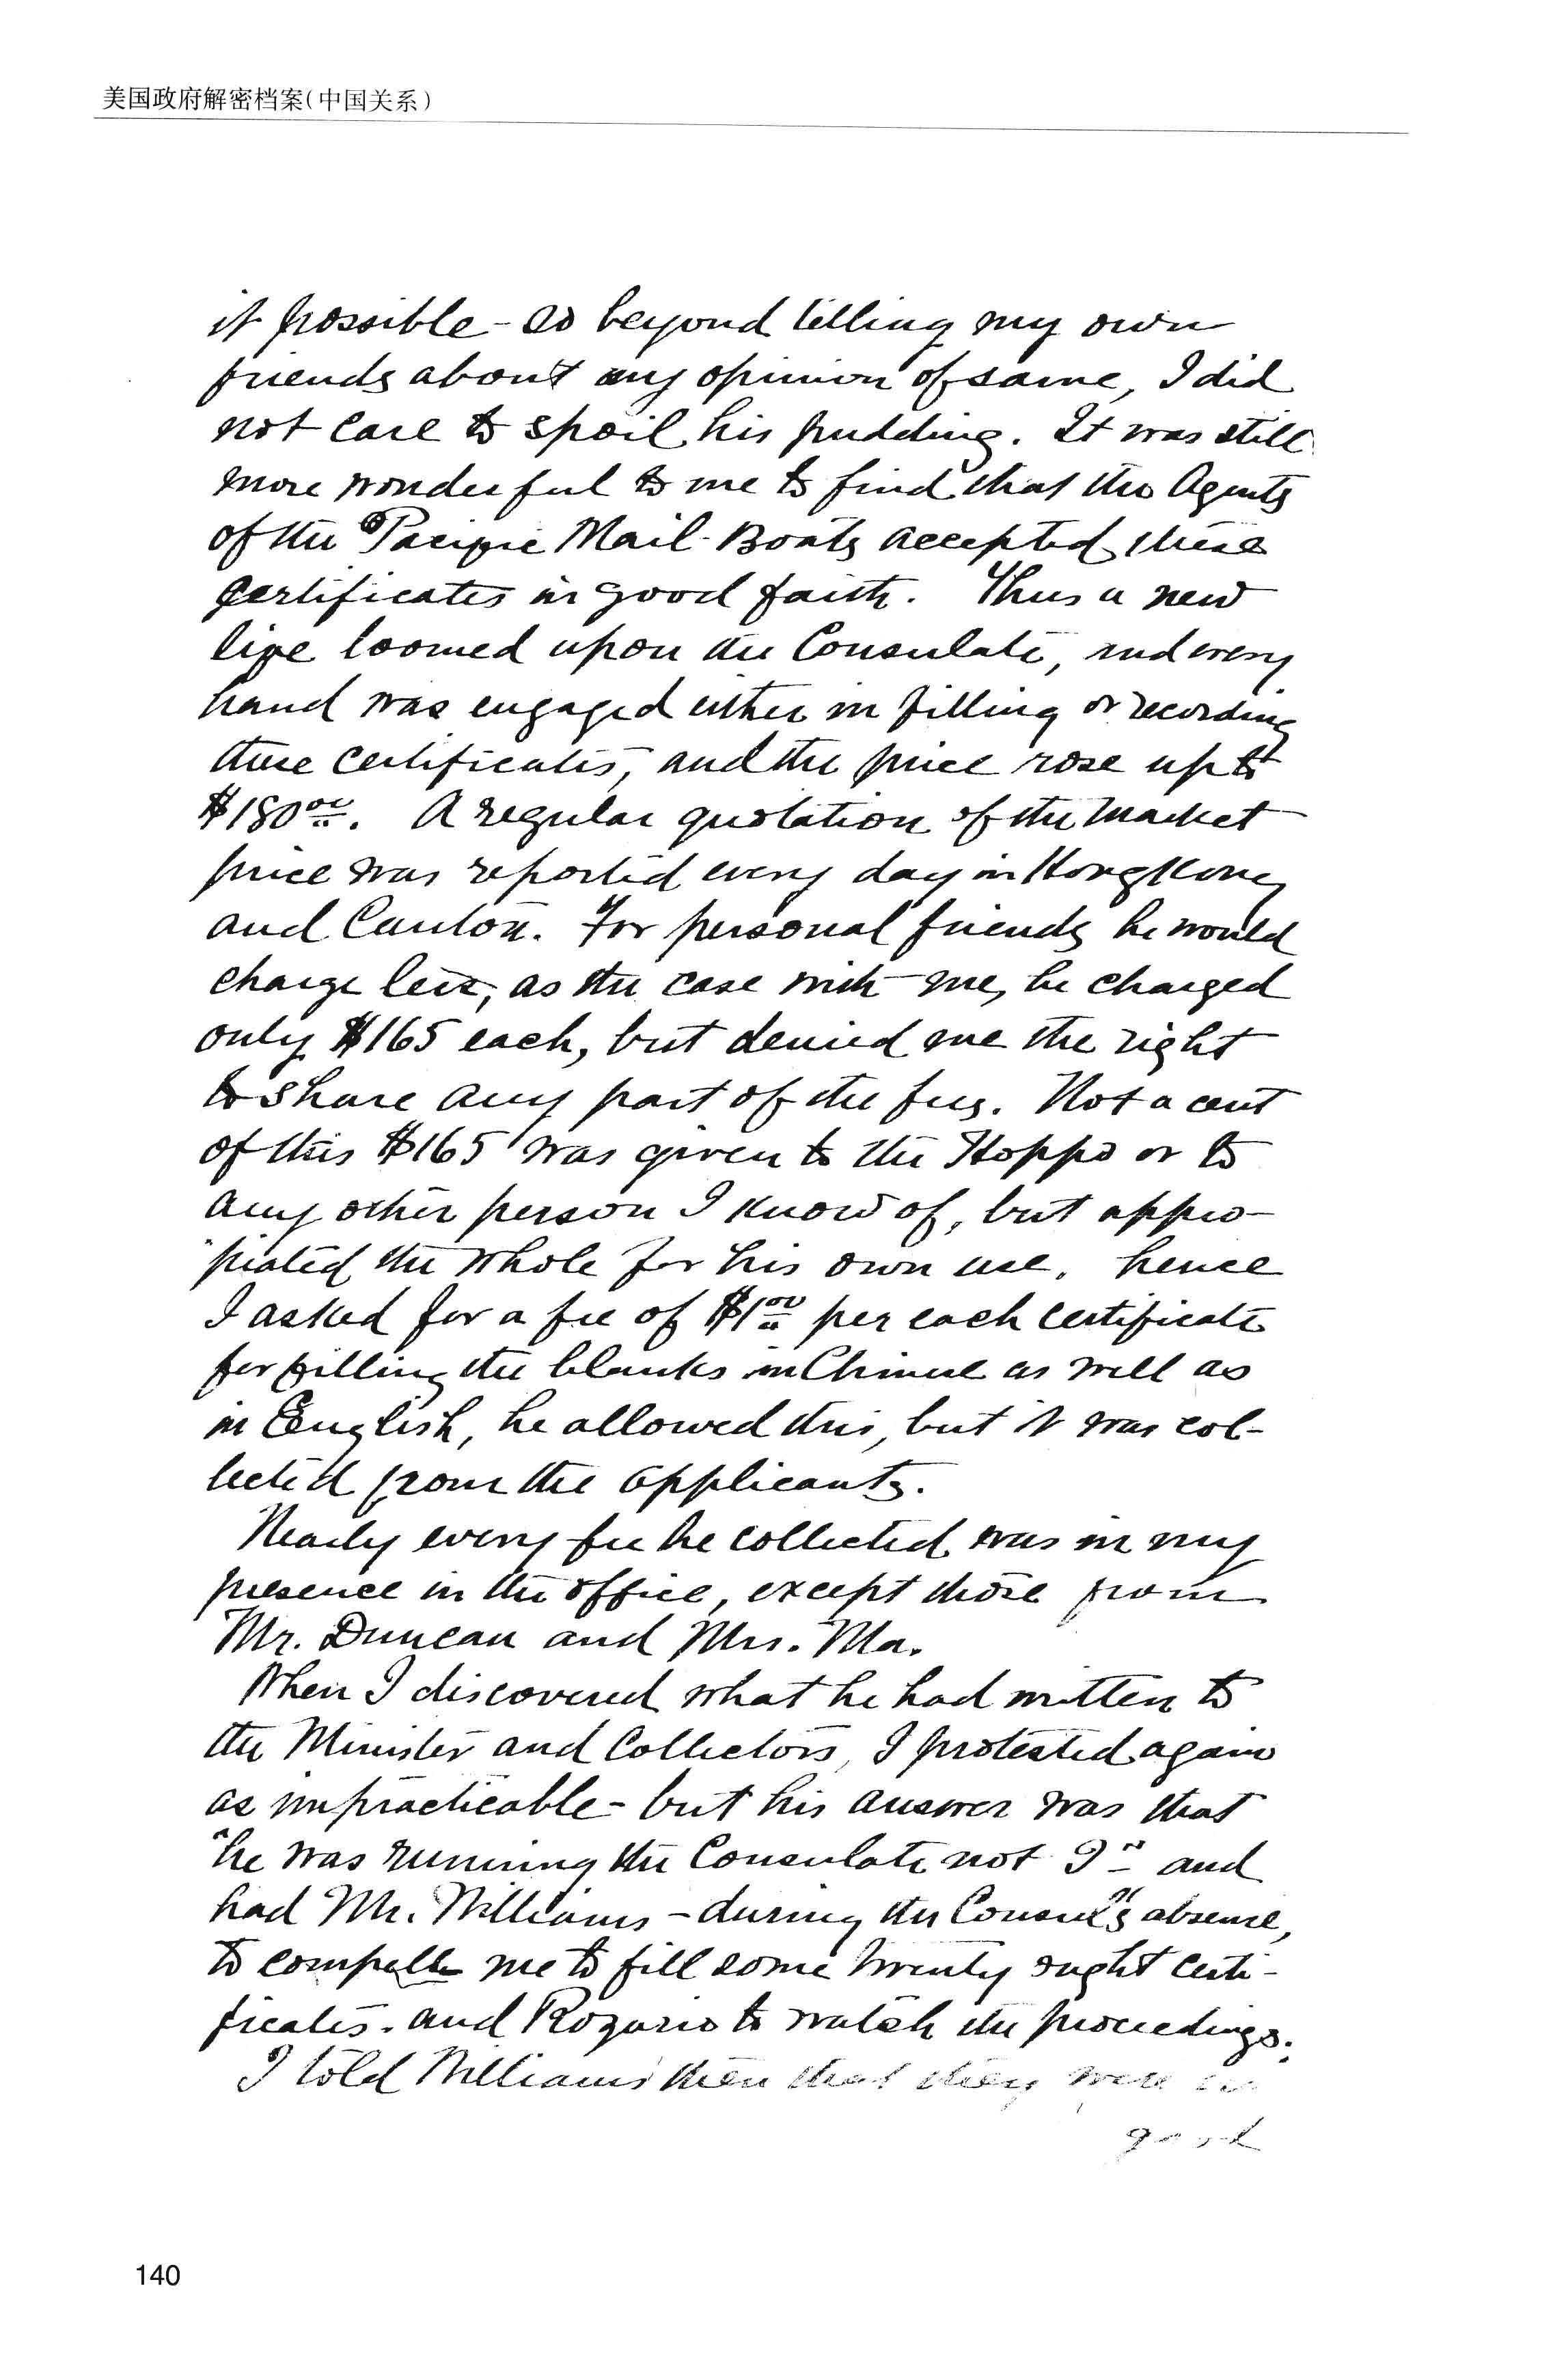 美国政府解密档案(中国关系)
it possible - so beyond telling my own
friends about my opinion of same, I did
not care to spoil his pudding. It was still
more wonderful to me to find that the Agents
of the Pacific Mail-Boats accepted these
certificates in good faith. Thus a new
life loomed upon the Consulate, and every
hand was engaged either in filling or recording
these certificates, and the price rose up to
$180.00. A regular quotation of the market
price was reported every day in HongKong
and Canton. For personal friends he would
charge less, as the case with me, he charged
only $165 each, but denied me the right
to share any part of the fees. Not a cent
of this $165 was given to the Hoppo or to
any other person I know of, but appro-
priated the whole for his own use. hence
I asked for a fee of $1.00 per each certificate
for filling the blanks in Chinese as well as
in English, he allowed this, but it was col-
lected from the applicants.
Nearly every fee he collected was in my
presence in the office, except those from
Mr. Duncan and Mrs. Ma.
When I discovered what he had written to
the Minister and Collectors, I protested again
as impracticable - but his answer was that
"he was running the Consulate not I" - and
had Mr. Williams - during the Consul's absence,
to compell me to fill some twenty eight certi-
ficates - and Rozario to watch the proceedings.
I told Williams then that they were
good
140